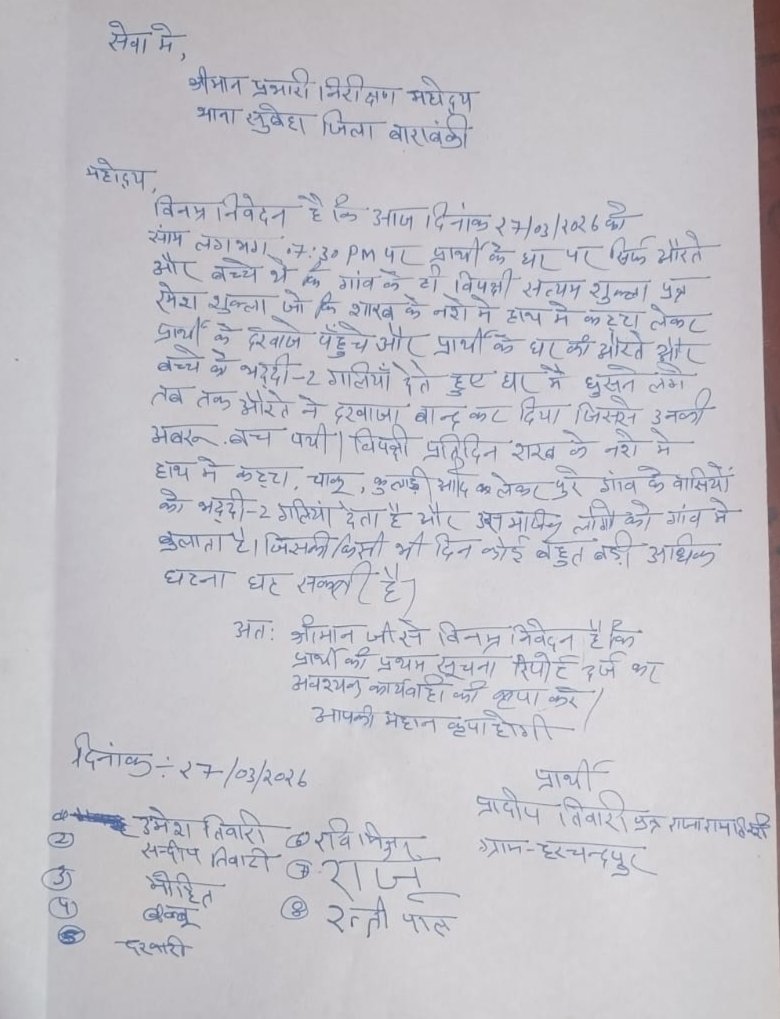 सेवा मे,
श्रीमान प्रभारी निरीक्षण महोदय
थाना सुबेहा जिला बाराबंकी
महोदय,
विनम्र निवेदन है कि आज दिनांक 27/03/2026 को
साम लगभग :7:30 PM पर प्रार्थी के घर पर सिर्फ औरते
और बच्चे थे कि गांव के ही विपक्षी सत्यम शुक्ला पुत्र
रमेश शुक्ला जो कि शराब के नशे मे हाथ मे कट्टा लेकर
प्रार्थी के दरवाजे पहुँचे और प्रार्थी के घर की औरते और
बच्चे को भद्दी-2 गालियाँ देते हुए घर मे घुसने लगे
तब तक औरते ने दरवाजा बान्द कर दिया जिससे उनकी
अबरू बच पायी। विपक्षी प्रतिदिन शराब के नशे मे
हाथ मे कट्टा, चाकू, कुलाडी आदि लेकर पुरे गांव के वासियों
को भद्दी-2 गलियां देता है और लोगो को गांव मे
बुलाता है। जिससे किसी भी दिन कोई बहुत बड़ी अधिक
घटना घट सकती है।
अत: श्रीमान जी से विनम्र निवेदन है कि
प्रार्थी की प्रथम सूचना रिपोर्ट दर्ज कर
अवश्यक कार्यवाही की कृपा करे।
आपकी महान कृपा होगी
दिनांक:- 27/03/2026
प्रार्थी
प्रादीप तिवारी पुत्र राजाराम तिवारी
ग्राम-हरचन्दपुर
उमेश तिवारी
② सन्दीप तिवारी
③ मोहित
④ बब्बू
⑤ दरबारी
⑥ रवि मिश्रा
⑦ राजू
⑧ रन्ती पाल